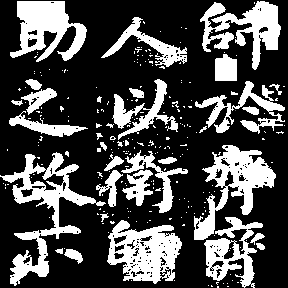 師於齊齊
人以衛師
助之故不